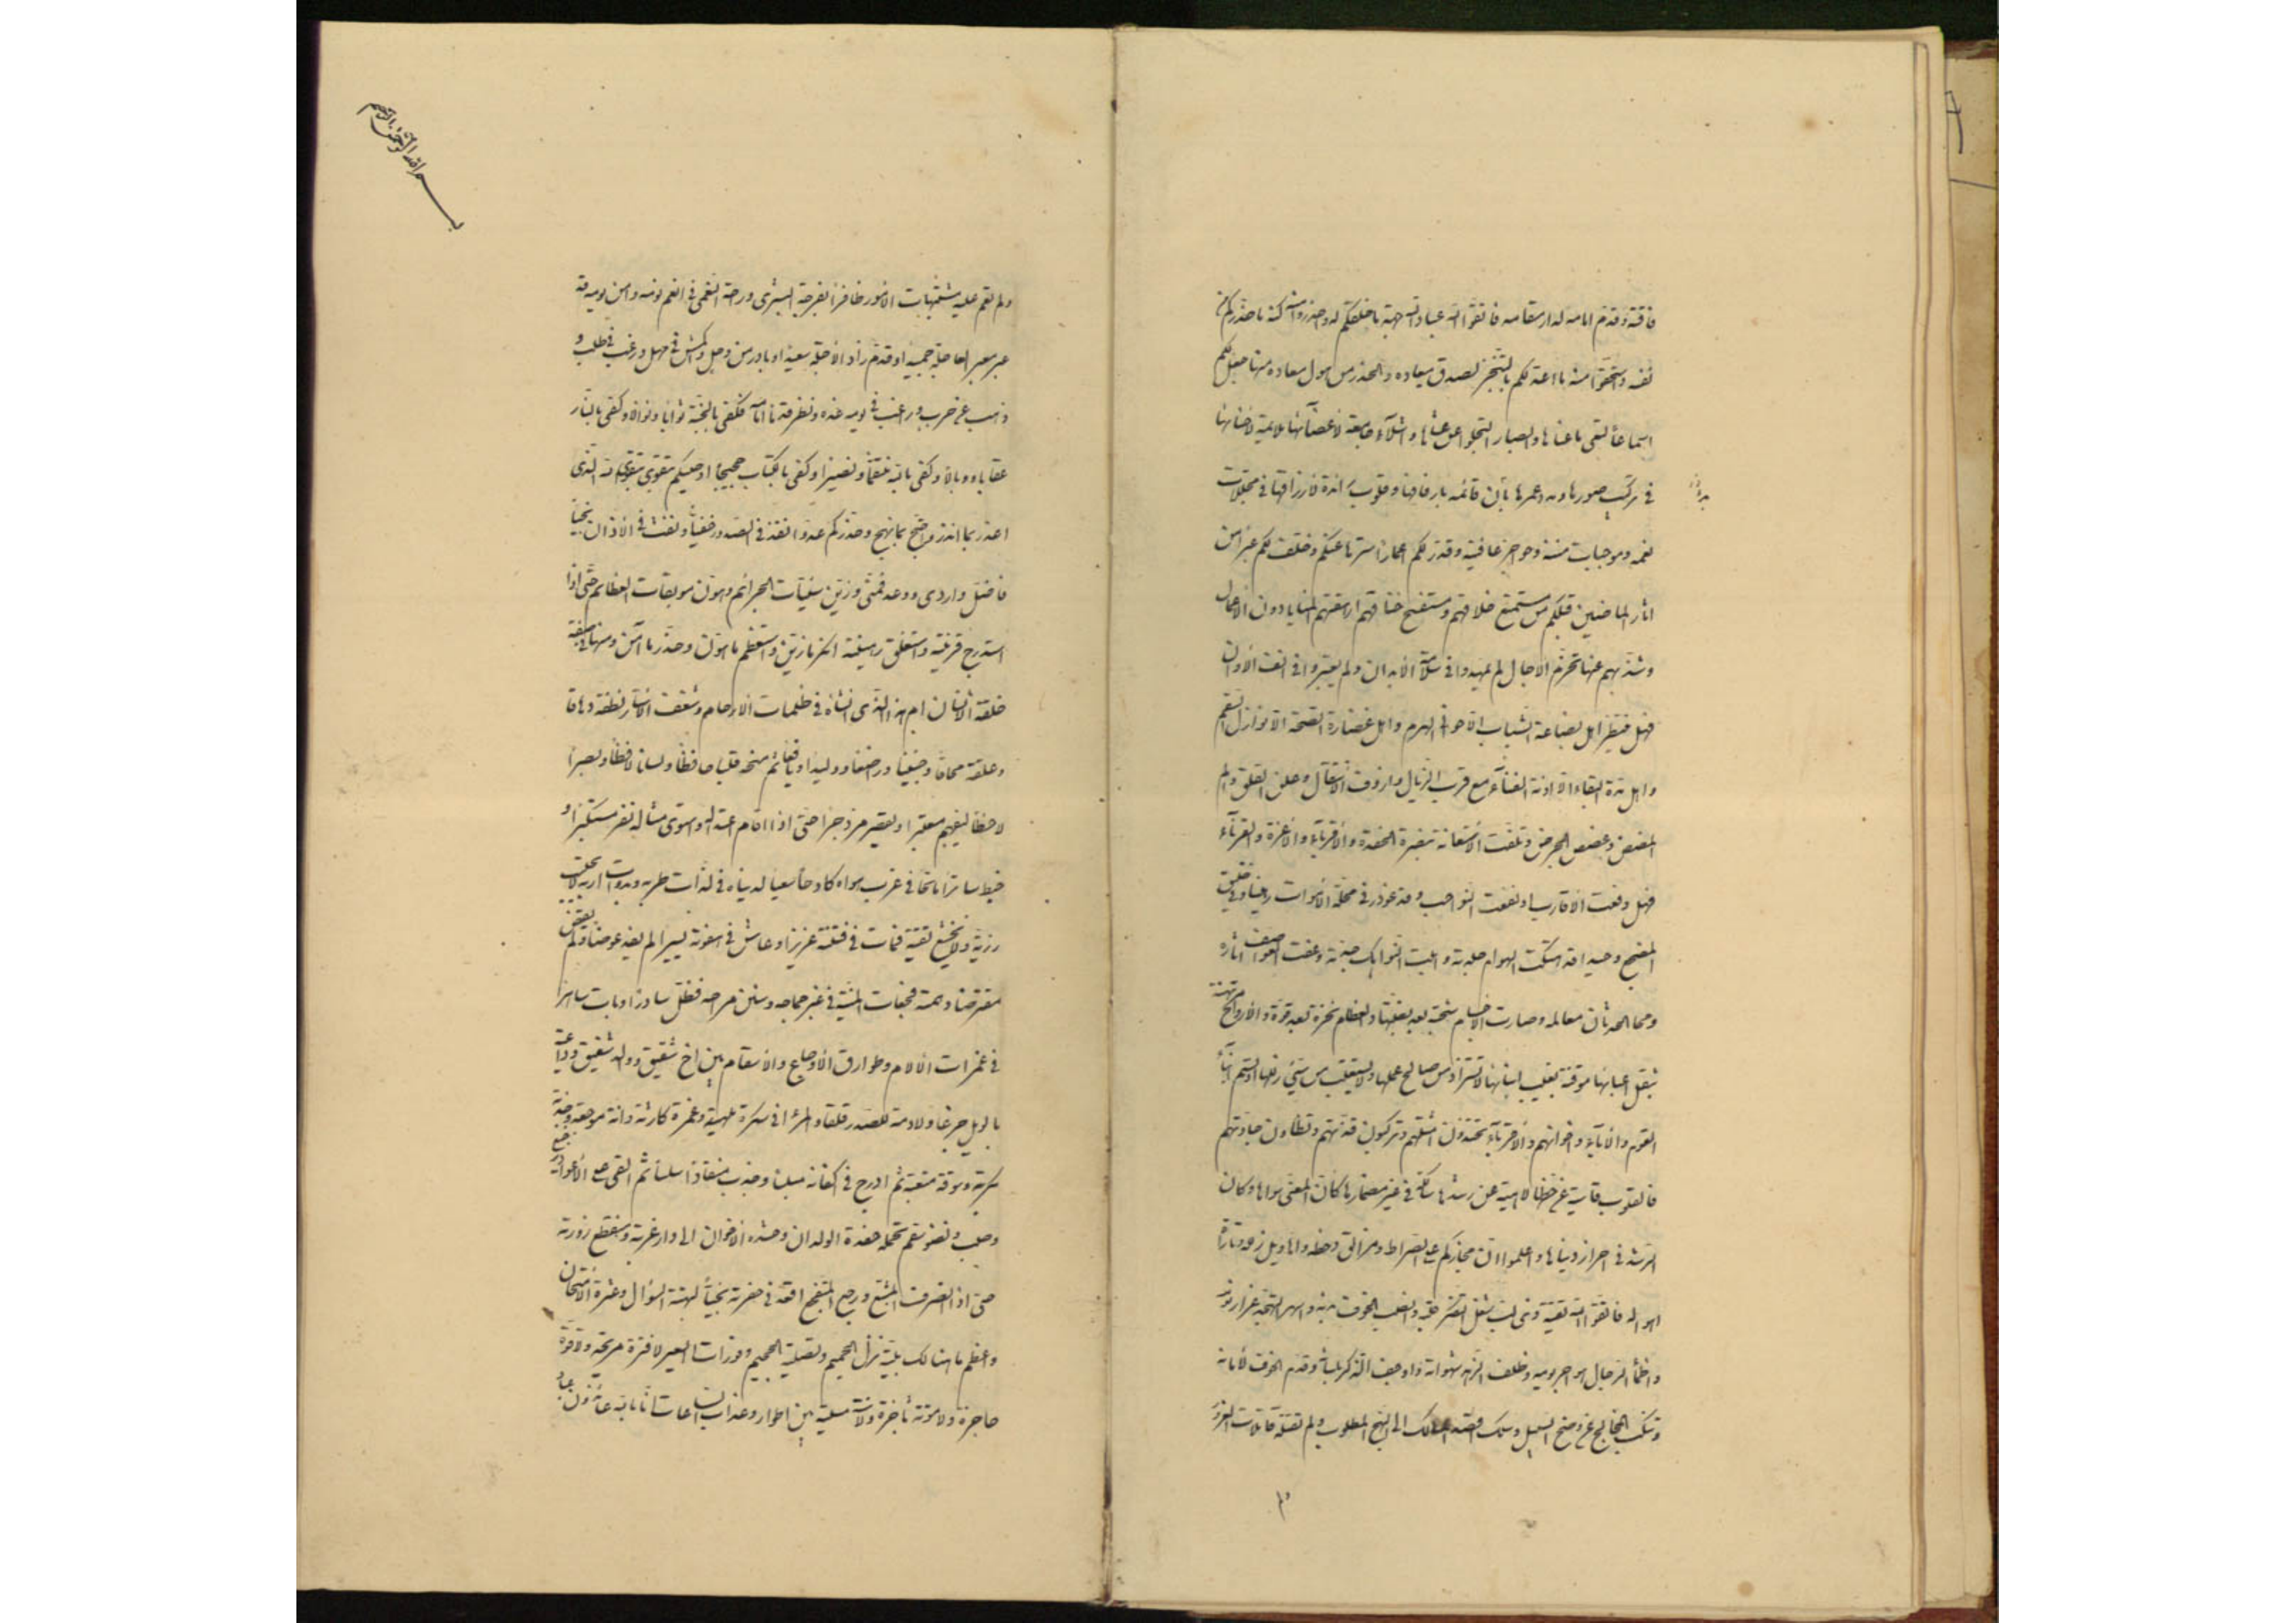 فاقته وقدم امامه لدار مقامه فاتقوا الله عباد الله جهة ما خلقكم له واحذروا منه كنه ما حذركم من
نفسه واستحقوا منه ما اعد لكم بالتنجز لصدق ميعاده والحذر من هول معاده منها جعل لكم
اسماعاً لتعي ما عناها وابصار التجلوا عن عشاها واشلاء جامعة لاعضائها ملايمة لاحنائها
في تركيب صورها ومدد عمرها بابدان قائمه بارفاقها وقلوب رائدة لارزاقها في مجللات
نعمه وموجبات مننه وحواجز عافيته وقدر لكم اعمارا سترها عنكم وخلف لكم عبرا من
اثار الماضين قبلكم من مستمتع خلاقهم ومستفسح خناقهم ارهقتهم المنايا دون الامال
وشذبهم عنها تخرم الاجال لم يمهدوا في سلامة الابدان ولم يعتبروا في انف الاوان
فهل ينتظر اهل بضاضة الشباب الا حواني الهرم واهل غضارة الصحة الا نوازل السقم
واهل مدة البقاء الا اونة الفناء مع قرب الزيال وازوف الانتقال وعلز القلق والم
المضض وغصص الجرض وتلفت الاستغاثة بنصرة الحفدة والاقرباء والاعزة والقرناء
فهل دفعت الاقارب او نفعت النواحب وقد غودر في محلة الاموات رهينا وفي ضيق
المضجع وحيدا قد هتكت الهوام جلدته وابلت النواهك جدته وعفت العواصف اثاره
ومحا الحدثان معالمه وصارت الاجساد شحبة بعد بضتها والعظام نخرة بعد قوتها والارواح مرتهنة
بثقل اعبائها موقنة بغيب انبائها لا تستزاد من صالح عملها ولا تستعتب من سيئ زللها اولستم ابناء
القوم والاباء واخوانهم والاقرباء تحتذون امثلتهم وتركبون قدتهم وتطاون جادتهم
فالقلوب قاسية عن حظها لاهية عن رشدها سالكة في غير مضمارها كان المعني سواها وكان
الرشد في احراز دنياها واعلموا ان مجازكم على الصراط ومزالق دحضه واهاويل زلله وتارات
اهواله فاتقوا الله تقية ذي لب شغل التفكر قلبه وانصب الخوف بدنه واسهر التهجد غرار نومه
واظمأ الرجاء هواجر يومه وظلف الزهد شهواته واوجف الذكر بلسانه وقدم الخوف لامانه
وتنكب المخالج عن وضح السبيل وسلك اقصد المسالك الى النهج المطلوب ولم تفتله فاتلات الغرور
بسم الله الرحمن الرحيم
ولم تعم عليه مشتبهات الامور ظافرا بفرحة البشرى وراحة النعمى في انعم نومه وامن يومه قد
عبر معبر العاجلة حميدا وقدم زاد الاجلة سعيدا وبادر من وجل واكمش في مهل ورغب في طلب و
ذهب عن هرب وراقب في يومه غده ونظر قدما امامه فكفى بالجنة ثوابا ونوالا وكفى بالنار
عقابا ووبالا وكفى بالله منتقماً ونصيرا وكفى بالكتاب حجيجا اوصيكم بتقوى الله الذي
اعذر بما انذر واحتج بما نهج وحذركم عدوا نفذ في الصدور خفياً ونفث في الاذان نجياً
فاضل واردى ووعد فمنى وزين سيئات الجرائم وهون موبقات العظائم حتى اذا
استدرج قرينته واستغلق رهينته انكر ما زين واستعظم ما هون وحذر ما امن ومنها في صفة
خلقة الانسان ام هذا الذي انشاه في ظلمات الارحام وشغف الاستار نطفة دهاقا
وعلقة محاقا وجنينا وراضعا ووليدا ويافعا ثم منحه قلبا حافظا ولسانا لافظا وبصرا
لاحظا ليفهم معتبرا ويقصر مزدجرا حتى اذا قام اعتداله واستوى مثاله نفر مستكبرا و
خبط سادرا ماتحا في غرب هواه كادحا سعيا لدنياه في لذات طربه وبدوات اربه لا يحتسب
رزية ولا يخشع تقية فمات في فتنته غريرا وعاش في هفوته يسيرا لم يفد عوضا ولم يقض
مفترضا دهمته فجعات المنية في غبر جماحه وسنن مراحه فظل سادرا وبات ساهرا
في غمرات الالام وطوارق الاوجاع والاسقام بين اخ شقيق ووالد شفيق وداعية
بالويل جزعا ولادمة للصدر قلقا والمرء في سكرة ملهية وغمرة كارثة وانة موجعة وجذبة
مكربة وسوقة متعبة ثم ادرج في اكفانه مبلسا وجذب منقادا سلسا ثم القي على الاعواد رجيع
وصب ونضو سقم تحمله حفدة الولدان وحشدة الاخوان الى دار غربته ومنقطع زورته
حتى اذا انصرف المشيع ورجع المتفجع اقعد في حفرته نجياً لبهتة السؤال وعثرة الامتحان
واعظم ما هنالك بلية نزل الحميم وتصلية الجحيم وفورات السعير لا فترة مريحة ولا قوة
حاجزة ولا موتة ناجزة ولا سنة مسلية بين اطوار وعذاب الساعات انا بالله عائذون عباد